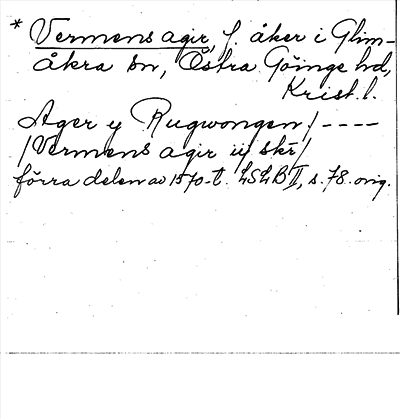 * Vermens agir, f. åker i Glim-
åkra sn, Östra Göinge hd,
Krist. l.
Ager y Rugwongen / ----
/ Vermens agir iij skr /
förra delen av 1570-t. LSLB II, s. 78. orig.